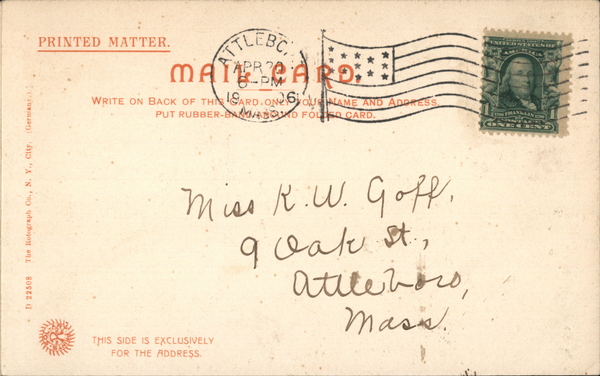 PRINTED MATTER.
ATTLEBORO
APR 20
6-PM
MASS.
MAIL CARD.
WRITE ON BACK OF THIS CARD ONLY YOUR NAME AND ADDRESS
PUT RUBBER-BAND AROUND FOLDED CARD.
UNITED STATES OF
AMERICA
FRANKLIN
ONE CENT
Miss K. W. Goff,
9 Oak St.,
Attleboro,
Mass.
D 22508 The Rotograph Co., N. Y., City. (Germany.)
THIS SIDE IS EXCLUSIVELY
FOR THE ADDRESS.